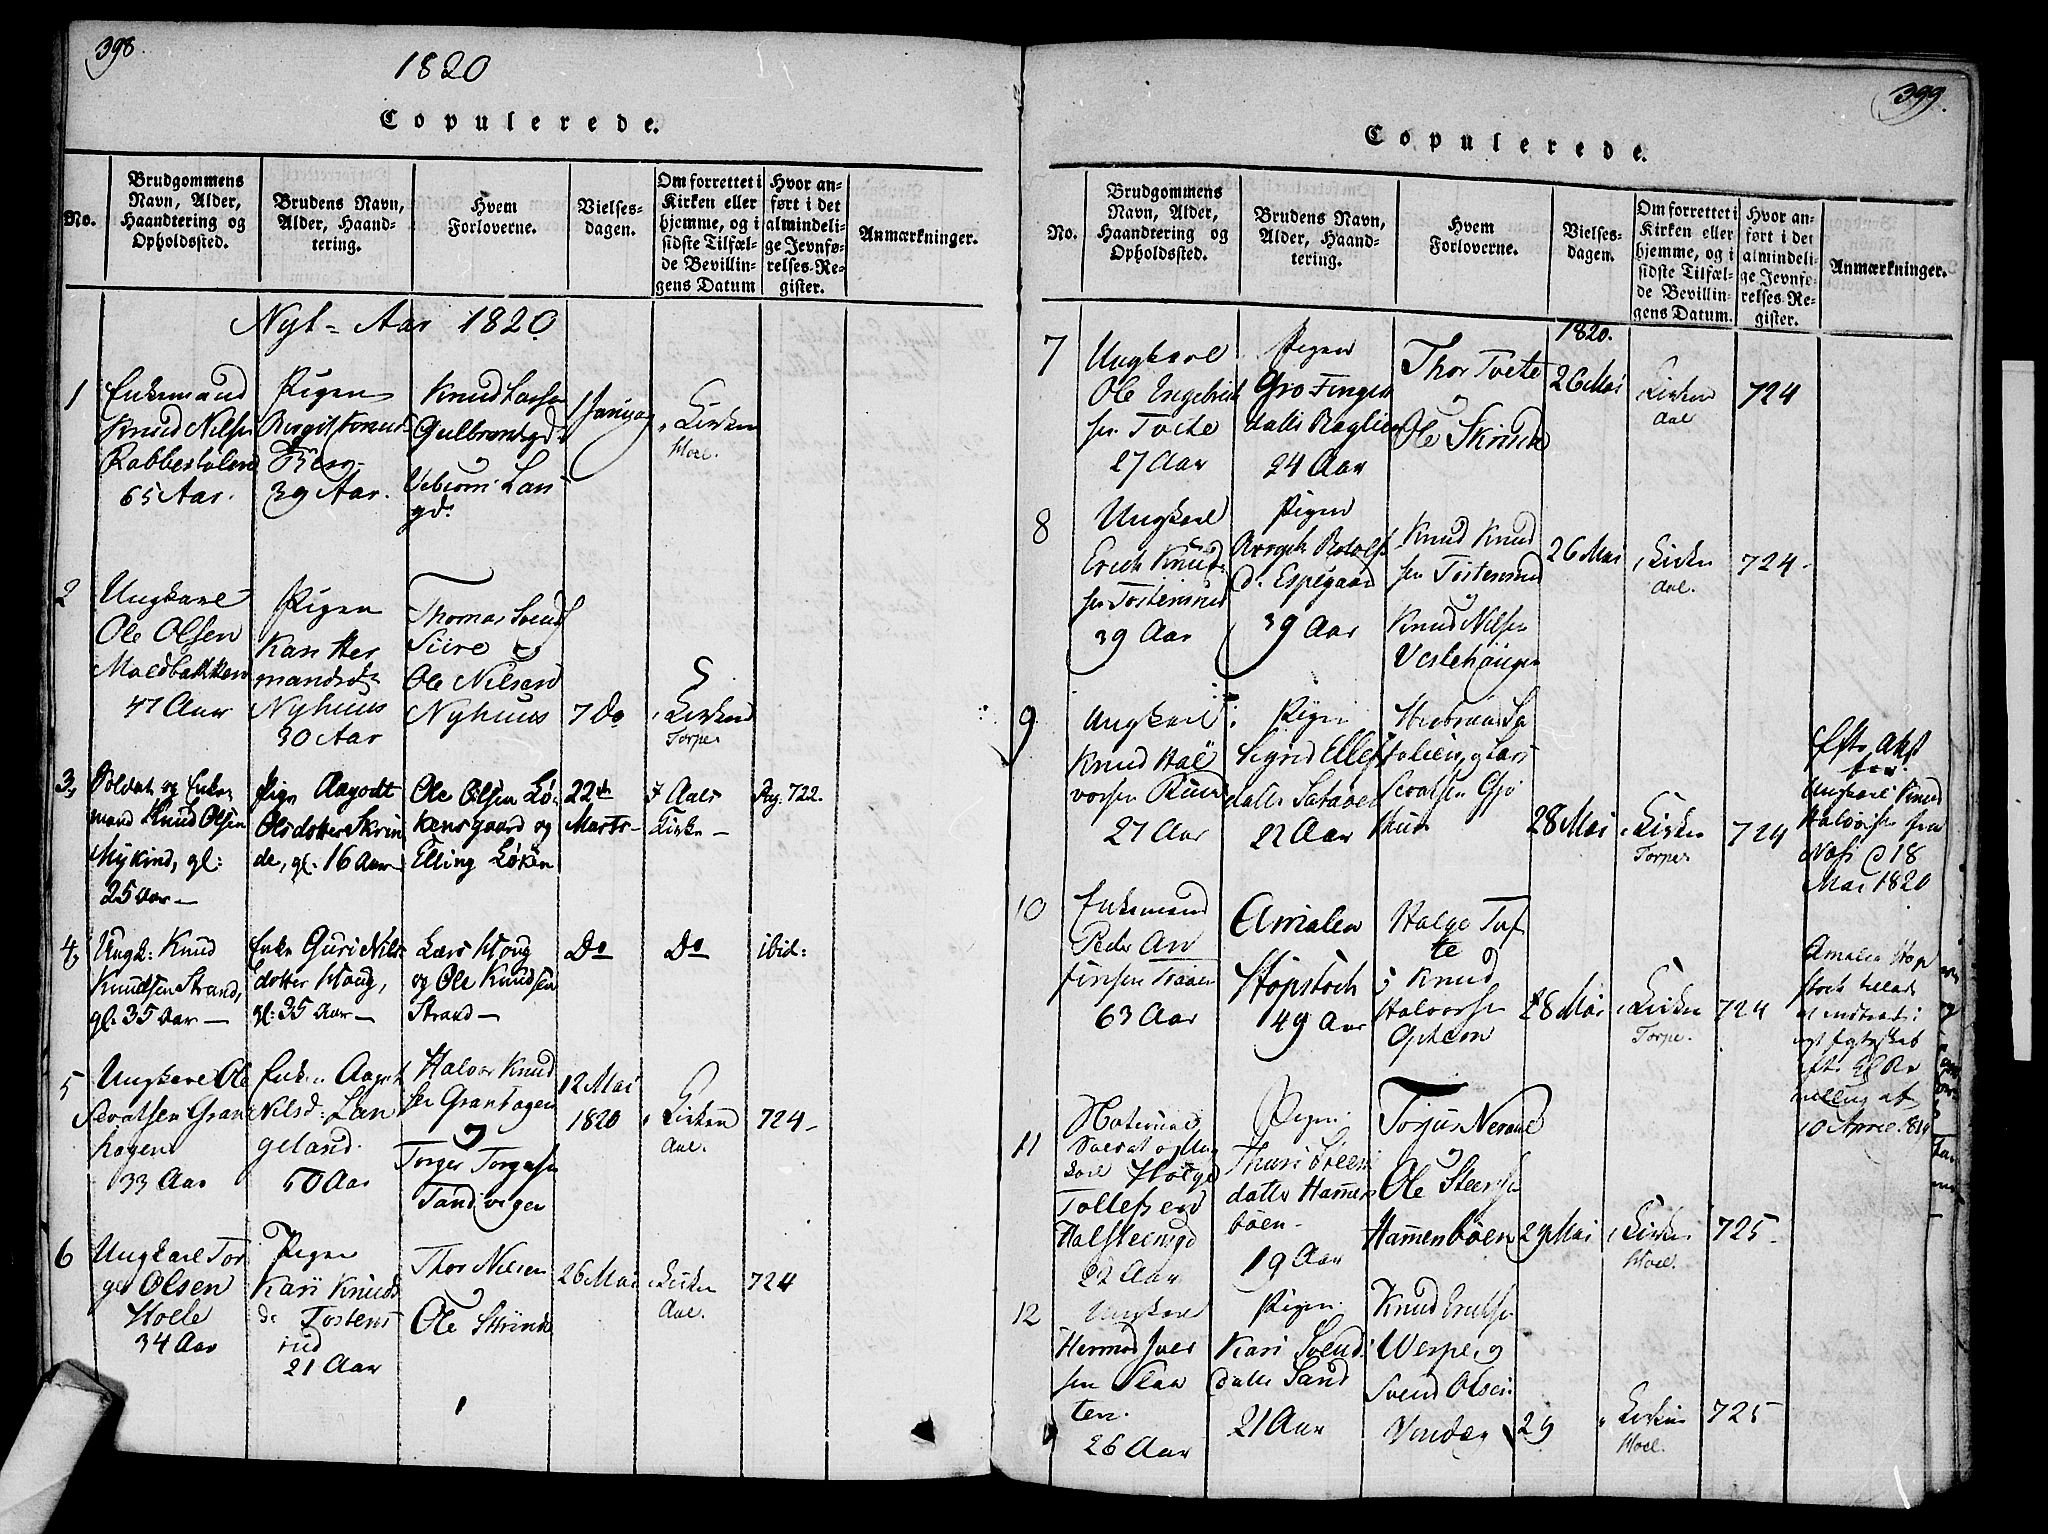 398.
1820
Copulerede.
No.
Brudgommens
Navn, Alder,
Haandtering og
Opholdssted.
Brudens Navn,
Alder, Haand-
tering.
Hvem
Forloverne.
Vielses-
dagen.
Om forrettet i
Kirken eller
hjemme, og i
sidste Tilfæl-
de Bevillin-
gens Datum
Hvor an-
ført i det
almindeli-
ge Jevnfø-
relses-Re-
gister.
Anmærkninger.
Nyt-Aar 1820
1
Enkemand
Knud Nilsen
Rabbestolen
65 Aar.
Pigen
Birgit
Berg
39 Aar.
Knud Larsen
Gulbrandsgd.
1 Januar
i Kirken
Hoel.
2
Ungkarl
Ole Olsen
Moldbakken
47 Aar
Pigen
Kari Her
mandsdr
Nyhuus
30 Aar
Thomas Svends
Siire
Ole Nilsen
Nyhuus
7 Do
i Kirken
Torpe
3,
Soldat og Enke-
mand Knud Olsen
Mykind, gl:
25 Aar -
Pige Aagodt
Olsdotter Skrin
de, gl. 16 Aar -
Ole Olsen Lø-
kensgaard og
Elling Løken
22de
Marts -
I Aals
Kirke -
Pag. 722.
4,
Ungk: Knud
Knudsen Strand,
gl. 35 Aar -
Enke Guri Nils-
dotter Houg,
gl. 35 Aar -
Lars Houg
og Ole Knudsen
Strand -
Do
Do
ibid:
5
Ungkarl Ole
Sevatsen Gran
hagen
33 Aar
Enken Aagot
Nilsd: Lan
geland.
50 Aar
Halvor Knud
sen Granhagen
Torger Torgersen
Sandvigen
12 Mai
1820
i Kirken
Aal.
724 -
6
Ungkarl Tor
ger Olsen
Hoele
34 Aar
Pigen
Kari Knuds
dr Tostens
rud
21 Aar
Thor Nilsen
Ole Skrinde
26 Mai
i Kirken
Aal.
724
399.
Copulerede.
No.
Brudgommens
Navn, Alder,
Haandtering og
Opholdssted.
Brudens Navn,
Alder, Haand-
tering.
Hvem
Forloverne.
Vielses-
dagen.
Om forrettet i
Kirken eller
hjemme, og i
sidste Tilfæl-
de Bevillin-
gens Datum.
Hvor an-
ført i det
almindeli-
ge Jevnfø-
relses-Re-
gister.
Anmærkninger.
1820.
7
Ungkarl
Ole Ingebrigt
sen Tveite
27 Aar
Pigen
Gro Finges
datter
24 Aar
Thor Tveite
Ole Skrinde
26 Mai
i Kirken
Aal
724
8
Ungkarl
Erich Knud-
sen Tostensrud
39 Aar
Pigen
Rotolfs
d. Espegaard
39 Aar
Knud Knud
sen Tostensrud
Knud Nilsen
Veslehaugen
26 Mai
i Kirken
Aal.
724 -
9
Ungkarl
Knud Hal
vorsen Ruud
27 Aar
Pigen
Sigrid Ellefs
datter
22 Aar
28 Mai
i Kirken
Torpe
724
Efter Attest
for
Ungkarl Knud
Halvorsen fra
Næs d 18
Mai 1820
10
Enkemand
Peder An
finsen
63 Aar
Amalea
Stopstock
49 Aar
Halge Tuf
te
Knud
Halvorsen
Opheim
28 Mai
i Kirken
Torpe.
724
Amalea Stop
stock
efter
af
10 April 
11
National
Soldat og Ung
karl Holge
Tollefsen
Halsteensgd
22 Aar
Pigen
Thuri Steens
datter Hammers
böen -
19 Aar
Torjus Neraal
Ole Steensen
Hammersböen
29 Mai
i Kirken
Hoel.
725 -
12
Ungkarl
Hermod Iver
sen Slaa
ten.
26 Aar
Pigen
Kari Svends
datter Sand
21 Aar
Knud
Werpe, og
Svend Olsen
29
i Kirken
Hoel.
725